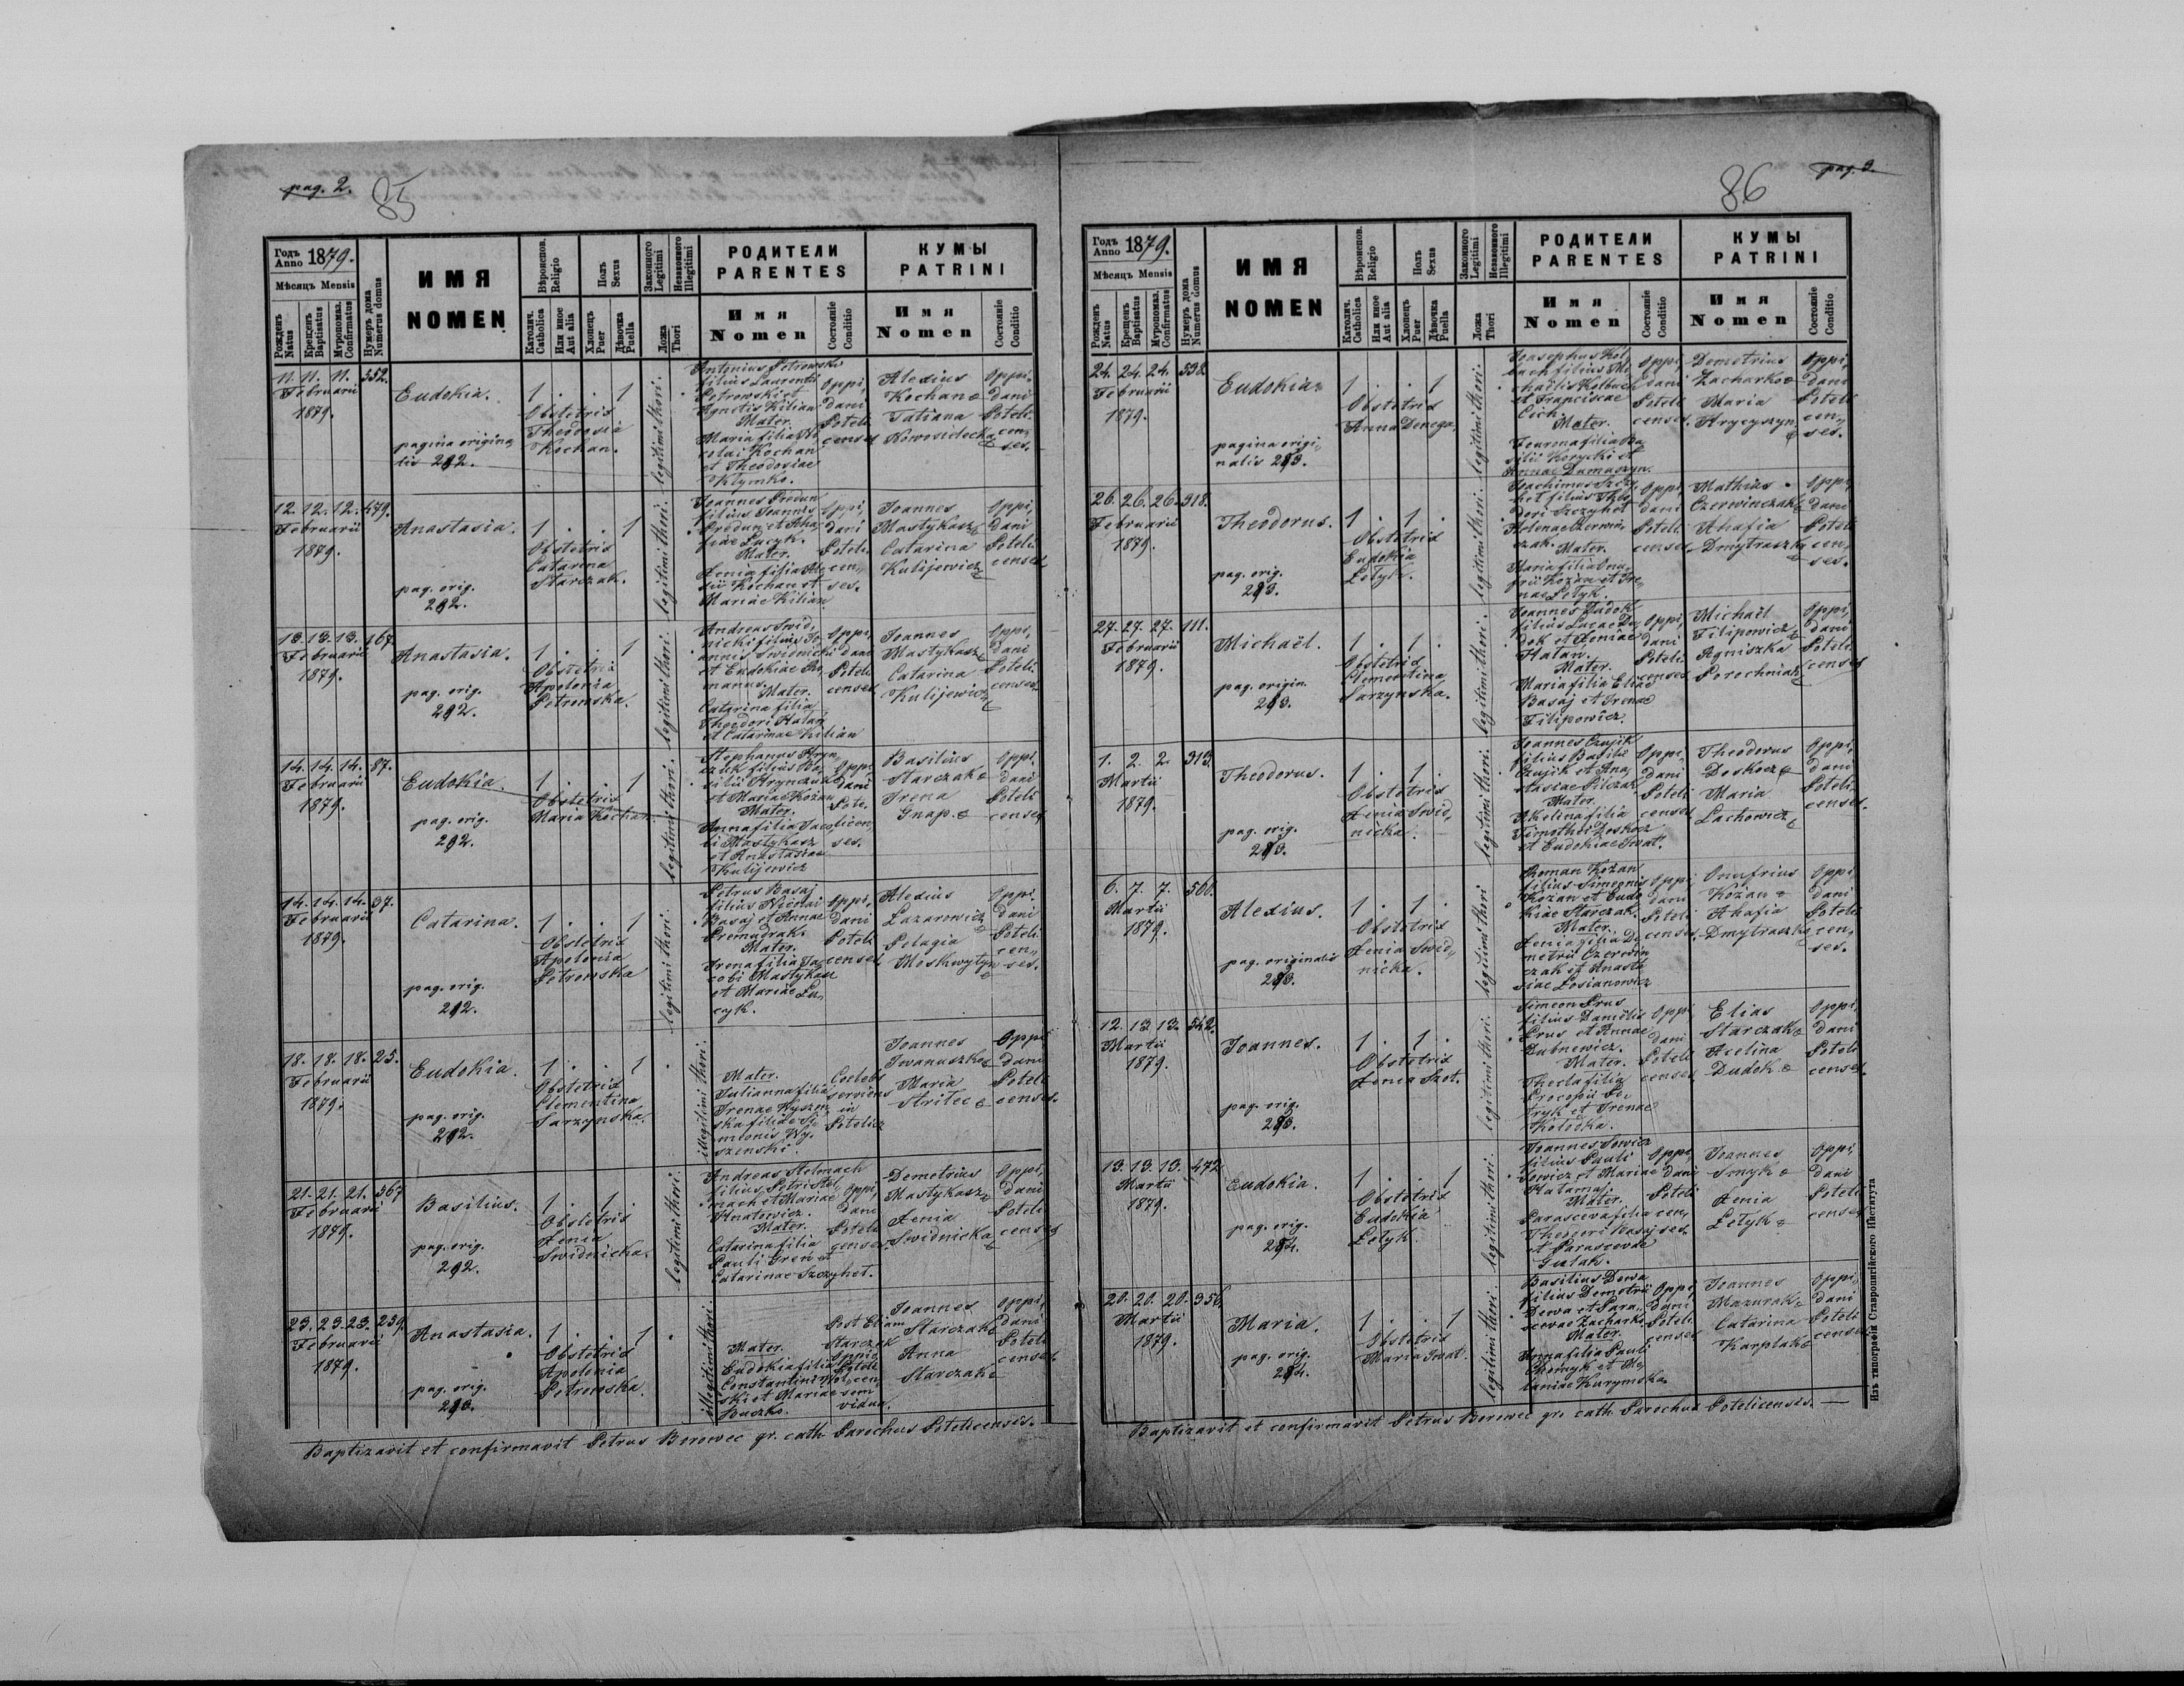 pag. 2.
85
Годъ Anno 1879.
Мѣсяцъ Mensis
Рожденъ Natus
Крещенъ Baptisatus
Мѵропомаз. Confirmatus
Нумеръ дома Numerus domus
ИМЯ
NOMEN
Вѣроисповѣд. Religio
Католич. Catholica
Или иное Aut alia
Полъ Sexus
Хлопецъ Puer
Дѣвочка Puella
Законного Legitimi
Незаконного Illegitimi
Ложа Thori
РОДИТЕЛИ
PARENTES
Имя
Nomen
Состояніе Conditio
КУМЫ
PATRINI
Имя
Nomen
Состояніе Conditio
11. 11. 11. 352.
Februarii
1879.
Eudokia.
pagina origina
lis 292.
1 . . 1
Obstetrix
Theodosia
Kochan.
legitimi thori.
Antonius Petrowski
filius Laurentii
Petrowski et
Agnetis Kilian
Mater.
Maria filia Ni
colai Kochan
et Theodosiae
Klymko.
Oppi
dani
Poteli
censes
Alexius
Kochan &
Tatiana
Nowosidecka
Oppi
dani
Poteli
cen
ses.
12. 12. 12. 479.
Februarii
1879.
Anastasia.
pag. orig.
292.
1 . . 1
Obstetrix
Catarina
Starczak.
legitimi thori.
Joannes Predun
filius Joannis
Predun et Aha
fiae Lucyk.
Mater.
Xenia filia Ale
xii Kochan et
Mariae Kilian
Oppi,
dani
Poteli
cen,
ses.
Joannes
Mastykasz
Catarina
Kulijewicz
Oppi,
dani
Poteli
censes
13. 13. 13. 167.
Februarii
1879.
Anastasia.
pag. orig.
292.
1 . . 1
Obstetrix
Apolonia
Petrowska.
legitimi thori.
Andreas Swid,
nicki filius Jo,
annis Swidnicki
et Eudokiae Ro,
manus.
Mater.
Catarina filia
Theodori Hatan
et Catarinae Kilian
Oppi,
dani
Poteli
censes
Joannes
Mastykasz
Catarina
Kulijewicz
Oppi,
dani
Poteli
censes.
14. 14. 14. 87.
Februarii
1879.
Eudokia.
pag. orig.
292.
1 . . 1
Obstetrix
Maria Kochan.
legitimi thori.
Stephanus Hryn
czuk filius Ba
silii Hrynczuk
et Mariae Kożan
Mater.
Anna filia Jaco
bi Mastykasz
et Anastasiae
Kulijewicz
Oppi
dani
Pote,
licen,
ses.
Basilius
Starczak &
Irena
Gnap. &
Oppi,
dani
Poteli
censes
14. 14. 14. 37.
Februarii
1879.
Catarina.
pag. orig.
292.
1 . . 1
Obstetrix
Apolonia
Petrowska
legitimi thori.
Petrus Basaj
filius Nicolai
Basaj et Annae
Premudrak.
Mater.
Irena filia Ja
cobi Mastykasz
et Mariae Lu,
cyk.
Oppi,
dani
Poteli
censes
Alexius
Lazarowicz
Pelagia
Moskwytyn
Oppi.
dani
Poteli
cen,
ses.
18. 18. 18. 25.
Februarii
1879.
Eudokia.
pag. orig.
292.
1 . . 1
Obstetrix
Clementina
Sarzynska.
illegitimi thori.
Mater.
Julianna filia
Irenae Wyszyn
ska filiae Si
meonis Wy,
szenski.
Coelebs
serviens
in
Potelicz
Joannes
Iwanuszko &
Maria
Strilec &
Oppi
dani
Poteli
censes.
21. 21. 21. 567
Februarii
1879.
Basilius.
pag. orig.
292.
1 . 1 .
Obstetrix
Xenia
Swidnicka.
legitimi thori.
Andreas Stelmach
filius Petri Stel,
mach et Mariae
Hnatewicz.
Mater.
Catarina filia
Pauli Hren et
Catarinae Szczyhet.
Oppi,
dani
Poteli
censes.
Demetrius
Mastykasz
Xenia
Swidnicka
Oppi,
dani
Poteli
censes
23. 23. 23. 239.
Februarii
1879.
Anastasia.
pag. orig.
293.
1 . . 1
Obstetrix
Apolonia
Petrowska.
illegitimi thori.
Mater.
Eudokia filia
Constantini
ski et Mariae
Buczko.
Post Eliam
Starczak
vidua.
Joannes
Starczak &
Anna
Starczak &
Oppi,
dani
Poteli
censes
Baptizavit et confirmavit Petrus Borowec gr. cath. Parochus Potelicensis.
pag. 3.
86
Годъ Anno 1879.
Мѣсяцъ Mensis
Рожденъ Natus
Крещенъ Baptisatus
Мѵропомаз. Confirmatus
Нумеръ дома Numerus domus
ИМЯ
NOMEN
Вѣроисповѣд. Religio
Католич. Catholica
Или иное Aut alia
Полъ Sexus
Хлопецъ Puer
Дѣвочка Puella
Законного Legitimi
Незаконного Illegitimi
Ложа Thori
РОДИТЕЛИ
PARENTES
Имя
Nomen
Состояніе Conditio
КУМЫ
PATRINI
Имя
Nomen
Состояніе Conditio
24. 24. 24. 538.
Februarii
1879.
Eudokia
pagina origi
nalis 293.
1 . . 1
Obstetrix
Anna Denega.
legitimi thori.
Josephus Kol
bach filius Mi
chaëlis Kolbach
et Franciscae
Cich.
Mater.
Joanna filia Ba
silii Korycki et
Annae Damaszyn.
Oppi,
dani
Poteli
censes.
Demetrius
Zacharko &
Maria
Hrycyszyn
Oppi,
dani
Poteli
cen,
ses.
26. 26. 26. 318.
Februarii
1879.
Theodorus.
pag. orig.
293.
1 . 1 .
Obstetrix
Eudokia
Łetyk.
legitimi thori.
Joachimus Szczy
het filius Theo
dori Szczyhet
Helenae Czerwin
czak.
Mater.
Maria filia Onu,
frii Kożan et Ire,
nae Łetyk.
Oppi,
dani
Poteli
censes
Mathias
Czerwinczak &
Ahafia
Dmytraszko
Oppi,
dani
Poteli
cen,
ses.
27. 27. 27. 111.
Februarii
1879.
Michaël.
pag. origin.
293.
1 . 1 .
Obstetrix
Clementina
Sarzynska.
legitimi thori.
Joannes Dudok
filius Lucae Du
dok et Xeniae
Hatan.
Mater.
Maria filia Eliae
Basaj et Irenae
Filipowicz.
Oppi,
dani
Poteli
censes
Michaël
Filipowicz
Agniszka
Porochniak
Oppi,
dani
Poteli
censes
1. 2. 2. 313.
Martii
1879.
Theodorus.
pag. orig.
293.
1 . 1 .
Obstetrix
Xenia Swid,
nicka.
legitimi thori.
Joannes Czujik
filius Basilii
Czujik et Ana,
stasiae Pilczak
Mater.
Akelina filia
Timothei Doskocz
et Eudokiae Iwat.
Oppi,
dani
Poteli
censes
Theodorus
Doskocz &
Maria
Lachowicz
Oppi,
dani
Poteli
censes.
6. 7. 7. 560.
Martii
1879.
Alexius.
pag. originalis
293.
1 . 1 .
Obstetrix
Xenia Swid,
nicka.
legitimi thori
Roman Kożan
filius Simeonis
Kożan et Eudo
kiae Starczak.
Mater.
Xenia filia De
metrii Czerwin
czak et Anasta
siae Łosianowicz
Oppi
dani
Poteli
censes.
Onufrius
Kożan &
Ahafia
Dmytraszko
Oppi
dani
Poteli
cen,
ses.
12. 13. 13. 542.
Martii
1879.
Joannes.
pag. orig.
293.
1 . 1 .
Obstetrix
Xenia Szot.
legitimi thori.
Simeon Prus
filius Daniëlis
Prus et Annae
Dubnewicz.
Mater.
Thecla filia
Procopii Pe
tryk et Irenae
Kołodka.
Oppi
dani
Poteli
censes
Elias
Starczak &
Acelina
Dudok &
Oppi
dani
Poteli
censes.
13. 13. 13. 472
Martii
1879.
Eudokia.
pag. orig.
294.
1 . . 1
Obstetrix
Eudokia
Łetyk.
legitimi thori.
Joannes Sowicz
filius Pauli
Sowicz et Mariae
Hatamaj.
Mater.
Parasceva filia
Theodori Basaj
et Parascevae
Gutak.
Oppi
dani
Poteli
cen,
ses.
Joannes
Smyk &
Xenia
Łetyk &
Oppi,
dani
Poteli
censes
20. 20. 20. 356.
Martii
1879.
Maria.
pag. orig.
294.
1 . . 1
Obstetrix
Maria Iwat.
legitimi thori.
Basilius Dewa
filius Demetrii
Dewa et Para,
scevae Zacharko
Mater.
Anna filia Pauli
Chomyk et Me,
laniae Kurymska.
Oppi,
dani
Poteli
censes
Joannes
Mazurak &
Catarina
Karplak &
Oppi,
dani
Poteli
censes
Baptizavit et confirmavit Petrus Borowec gr. cath. Parochus Potelicensis.
Изъ типографіи Ставропигійского Института